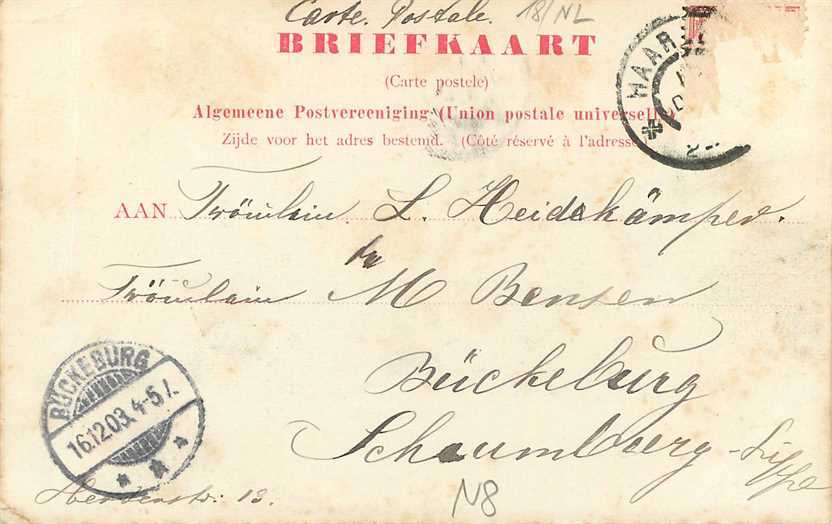 Carte. Postale. 18/NL
BRIEFKAART
(Carte postele)
Algemeene Postvereeniging (Union postale universelle)
Zijde voor het adres bestemd. (Côté réservé à l'adresse)
HAAR
AAN Fröulein. L. Heidekämper.
Fröulein M Bensen
Bückeburg
Schaumburg-Lippe
BÜCKEBURG
16.12.03. 4-5 N.
13.
N8